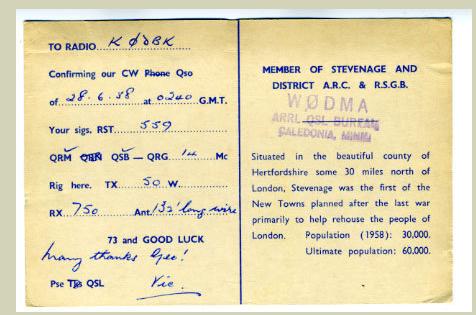 TO RADIO KØDBK
Confirming our CW Phone Qso
of 28.6.58 at 0240 G.M.T.
Your sigs. RST 559
QRM QRN QSB — QRG 14 Mc
Rig here. TX 50 W.
RX 750 Ant. 132' long wire
73 and GOOD LUCK
many thanks Geo!
Pse Tks QSL Vic.
MEMBER OF STEVENAGE AND
DISTRICT A.R.C. & R.S.G.B.
WØDMA
ARRL QSL BUREAU
CALEDONIA, MINN
Situated in the beautiful county of
Hertfordshire some 30 miles north of
London, Stevenage was the first of the
New Towns planned after the last war
primarily to help rehouse the people of
London. Population (1958): 30,000.
Ultimate population: 60,000.